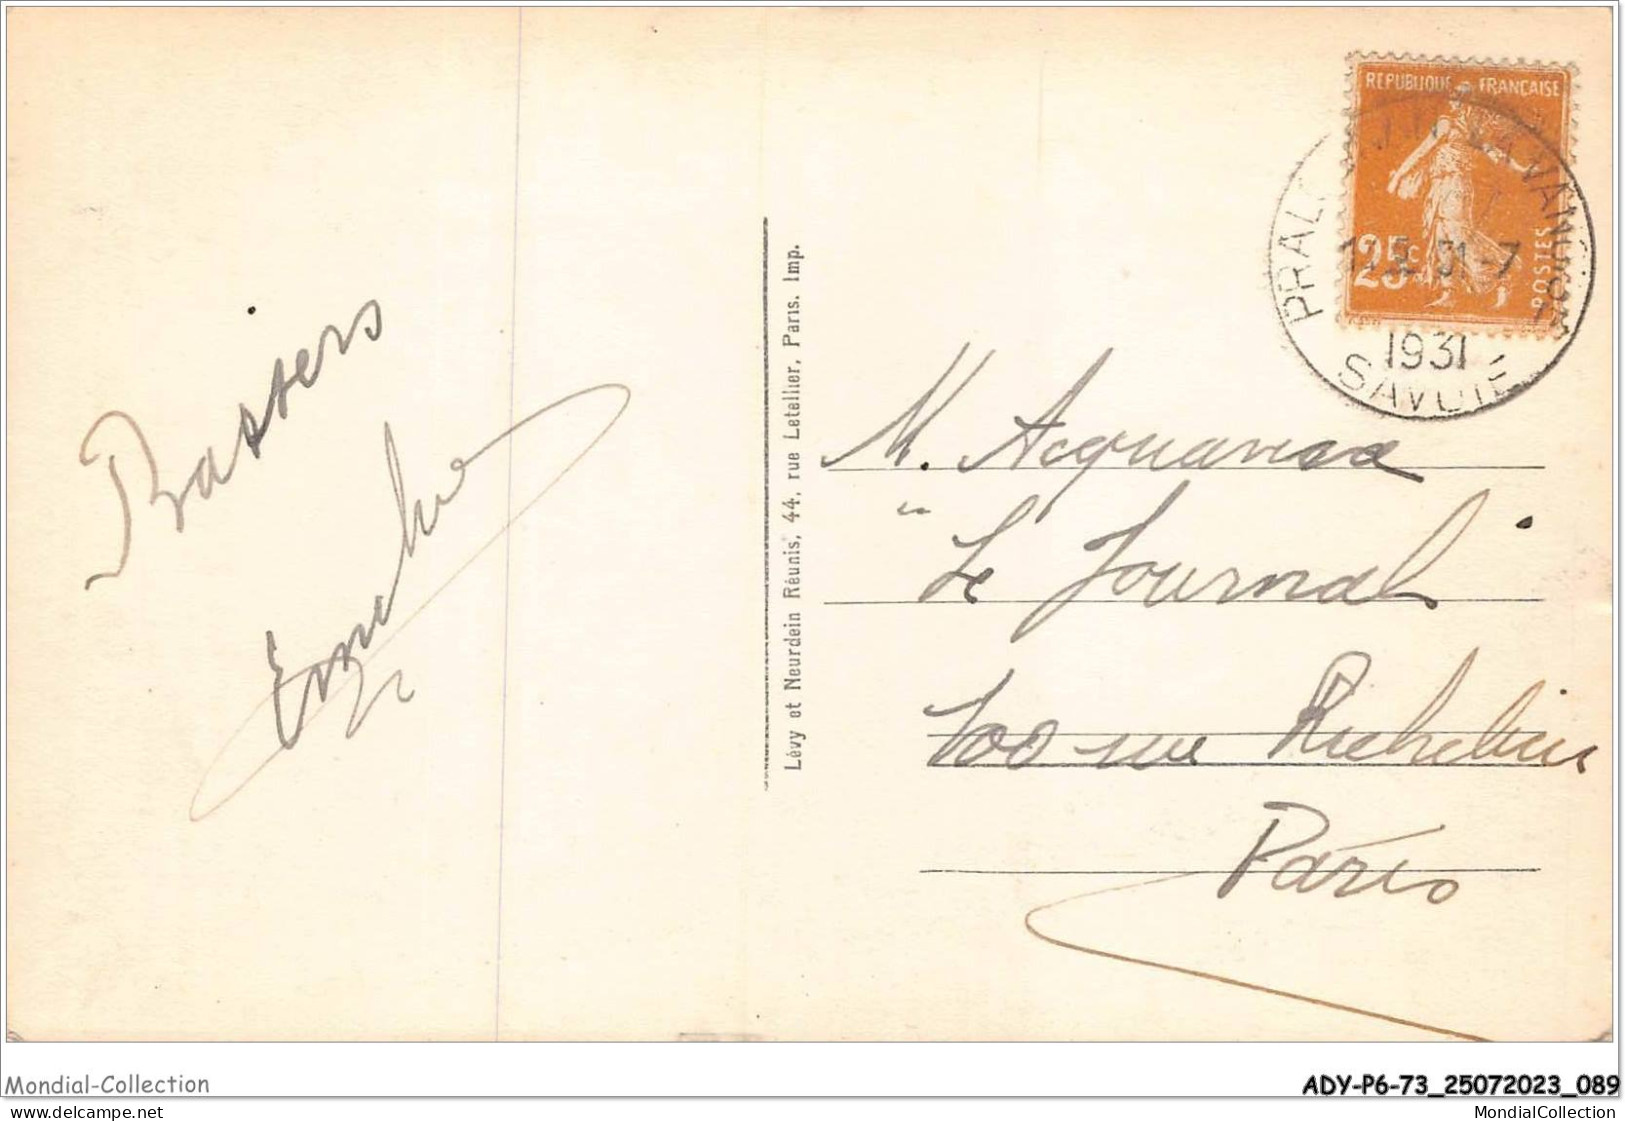 REPUBLIQUE FRANÇAISE
25c
POSTES
31-7
1931
SAVOIE
Baisers
Lévy et Neurdein Réunis, 44, rue Letellier, Paris. Imp.
M. Acquaviva
" Le Journal
100 rue Richelieu
Paris
Mondial-Collection
ADY-P6-73_25072023_089
Mondial-collection.delcampe.net
MondialCollection